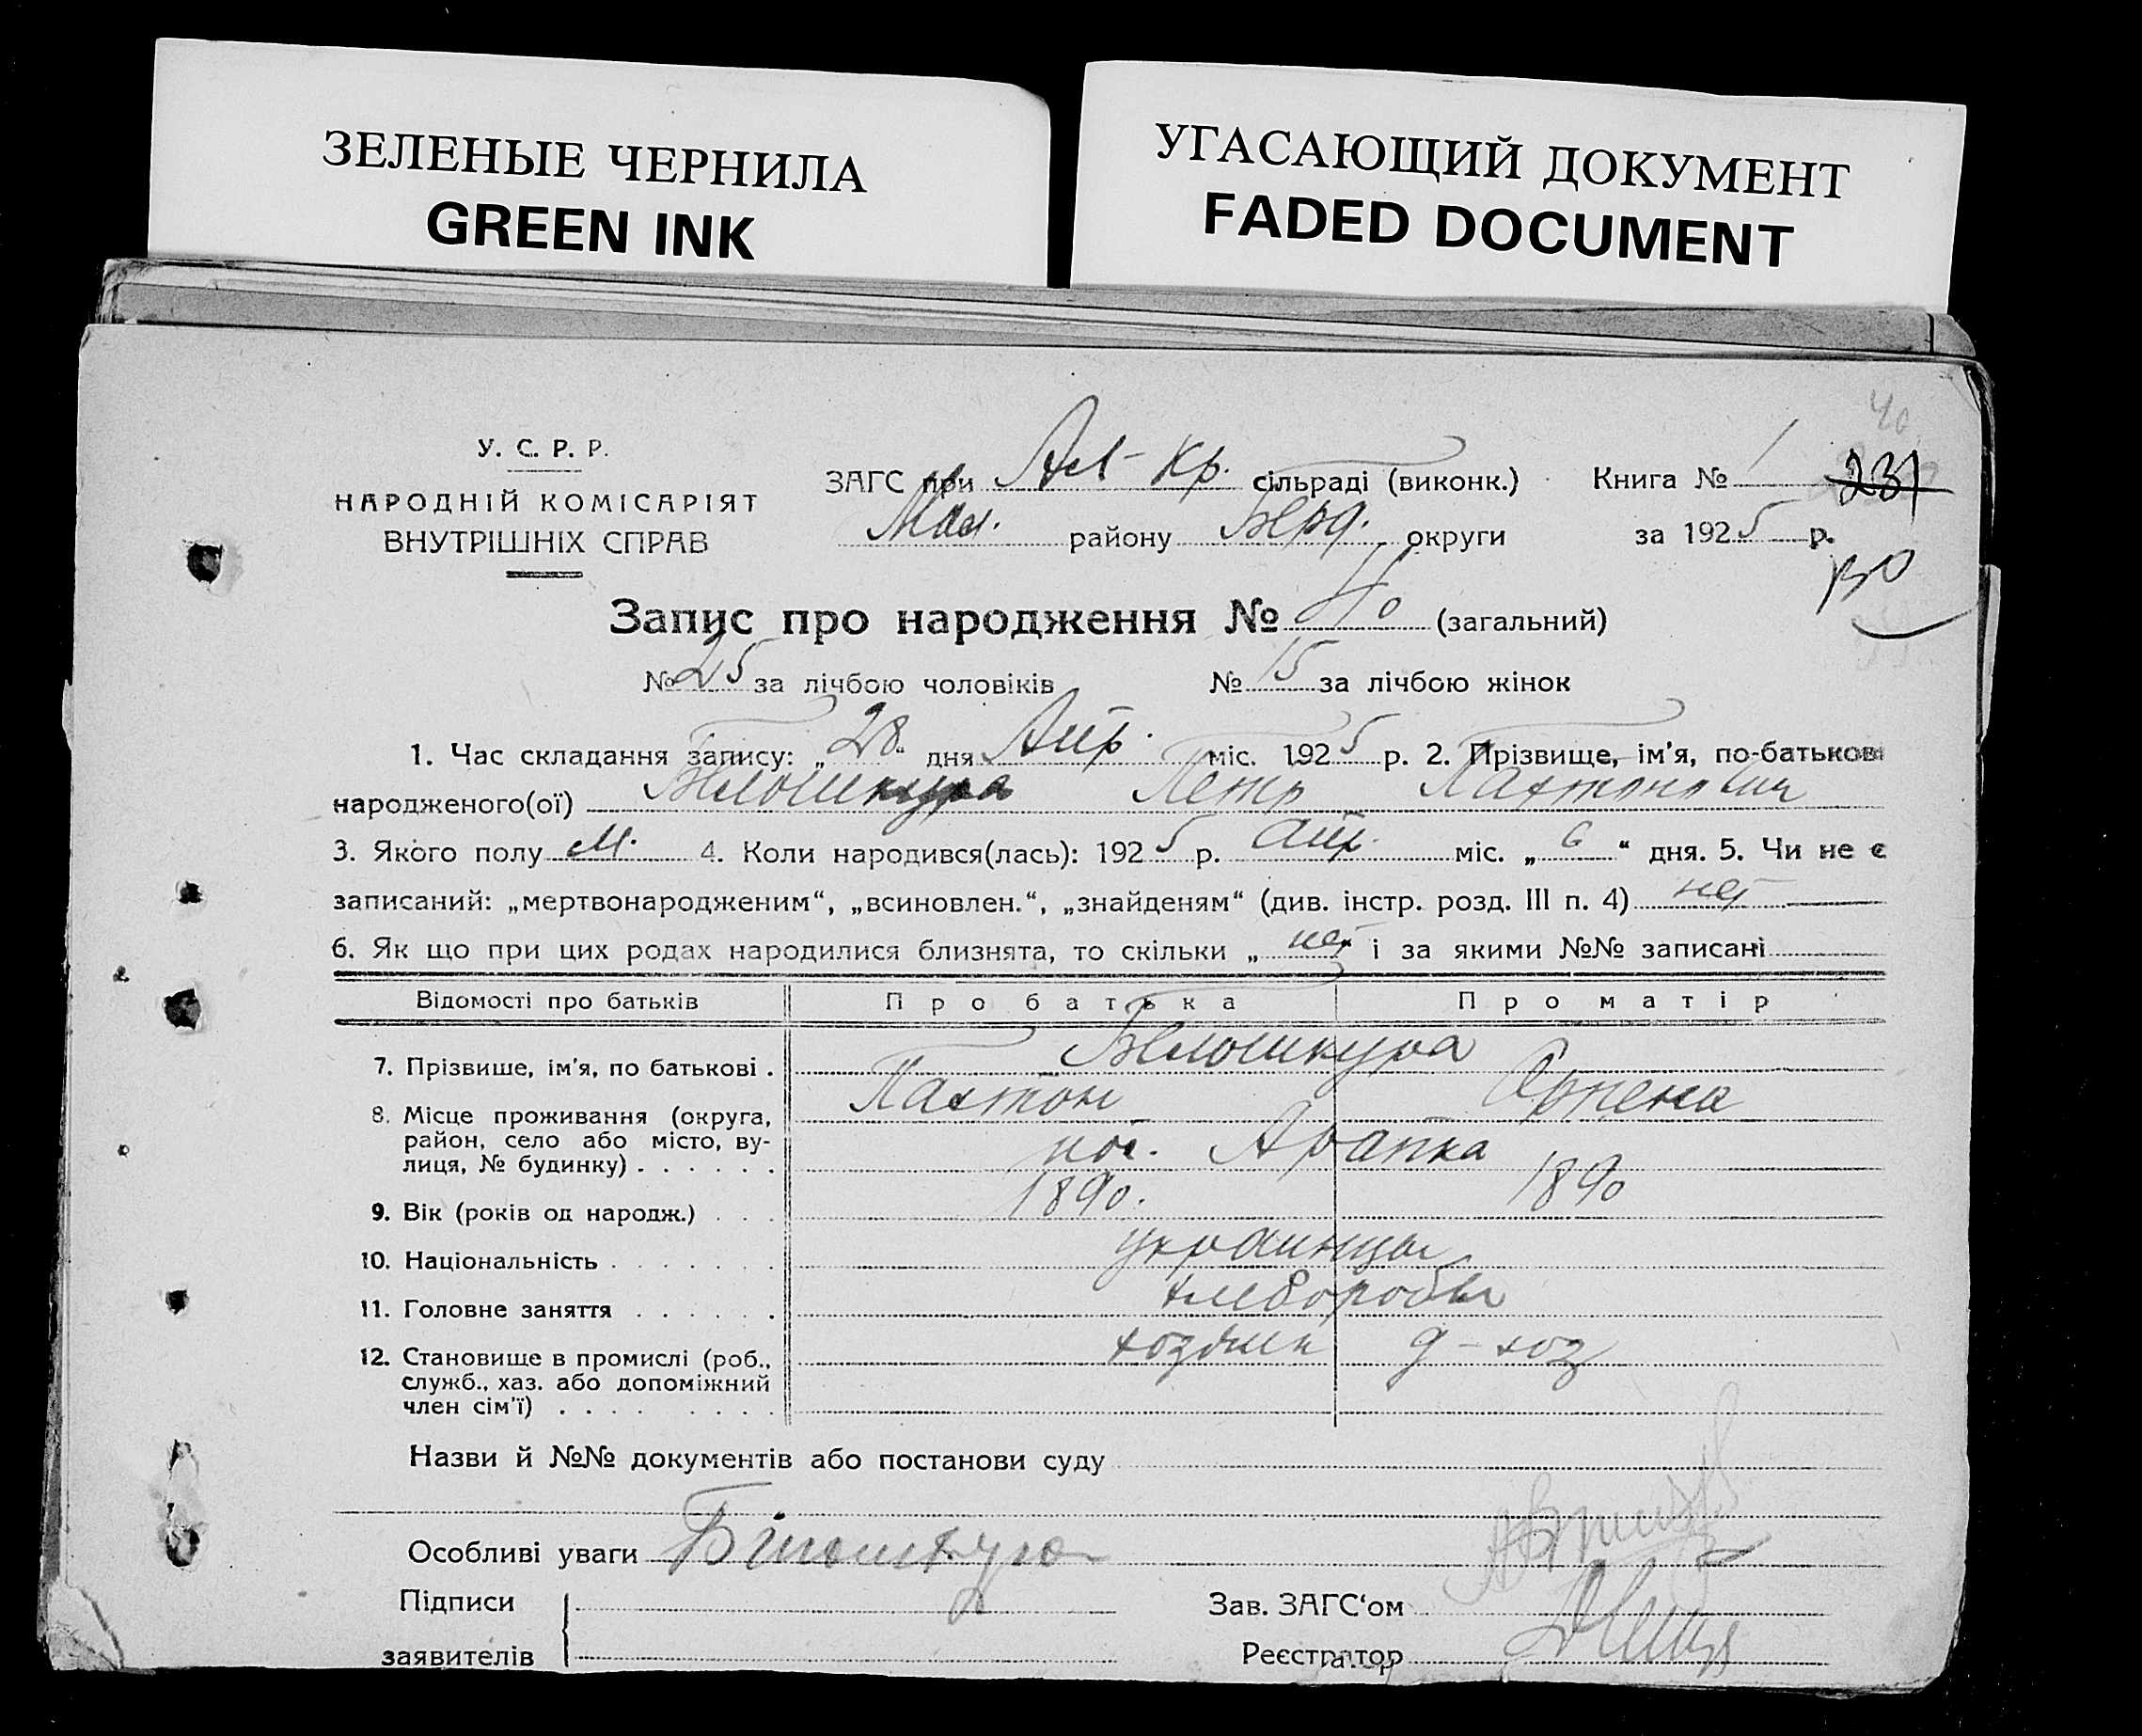 ЗЕЛЕНЫЕ ЧЕРНИЛА
GREEN INK
УГАСАЮЩИЙ ДОКУМЕНТ
FADED DOCUMENT
У. С. Р. Р.
НАРОДНІЙ КОМІСАРІЯТ
ВНУТРІШНІХ СПРАВ
40
ЗАГС при Ал-Кр. сільраді (виконк.) Книга № 1 231
района Берд. округи за 1925 р.
Запис про народження № 40 (загальний)
№ 25 за лічбою чоловіків № 15 за лічбою жінок
1. Час складання запису: „28“ дня Апр. міс. 1925 р. 2. Прізвище, ім'я, по-батькові
народженого(ої) Белошкура Петр
3. Якого полу м. 4. Коли народився(лась): 1925 р. апр. міс. „6“ дня. 5. Чи не є
записаний: „мертвонародженим“, „всиновлен.“, „знайденям“ (див. інстр. розд. III п. 4) нет
6. Як що при цих родах народилися близнята, то скільки „ нет і за якими №№ записані
Відомости про батьків Про батька Про матір
7. Прізвише, ім'я, по батькові . Белошкура
8. Місце проживання (округа,
район, село або місто, ву-
лиця, № будинку) . . . . . . пос.
9. Вік (років од народж.) . . . 1890. 1890
10. Національність . . . . . . . украинцы
11. Головне заняття . . . . . . хлеборобы
12. Становище в промислі (роб.,
служб., хаз. або допоміжний
член сім'ї) . . . . . . . . хозяин д-хоз
Назви й №№ документів або постанови суду
Особливі уваги Білошкура
Підписи
заявителів
Зав. ЗАГС‘ом
Реєстратор